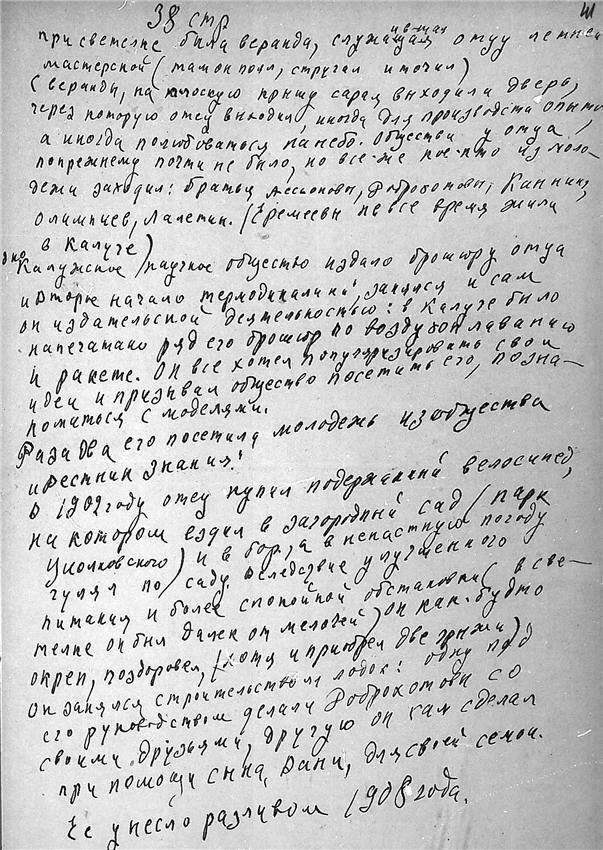 38 стр
при светелке была веранда, служившая отцу летней
мастерской (там он паял, стругал и точил)
С веранды, на плоскую крышу сарая выходила дверь,
через которую отец выходил, иногда для производства опытов,
а иногда полюбоваться на небо. Общества у отца,
попрежнему почти не было, но все-же кое-кто из моло-
дежи заходил: братья Ассоновы, Доброхотовы, Каннинг,
Олимпиев, Лалетин. (Еремеевы не все время жили
в Калуге)
Калужское научное общество издало брошюру отца
„Второе начало термодинамики", занялся и сам
он издательской деятельностью: в Калуге было
напечатано ряд его брошюр по воздухоплаванию
и ракете. Он все хотел популяризировать свои
идеи и призывал общество посетить его, позна-
комиться с моделями.
Раза два его посетила молодежь из общества
„Вестник Знания".
В 1902 году отец купил подержанный велосипед,
на котором ездил в загородный сад (парк
Циолковского) и в бор, а в ненастную погоду
гулял по саду. Вследствие улучшенного
питания и более спокойной обстановки (в све-
телке он был далек от мелочей) он как-будто
окреп, поздоровел, (хотя и приобрел две грыжи)
Он занялся строительством лодок: одну под
его руководством делали Доброхотовы со
своими друзьями, другую он сам сделал
при помощи сына, Вани, для своей семьи.
Ее унесло разливом 1908 года.